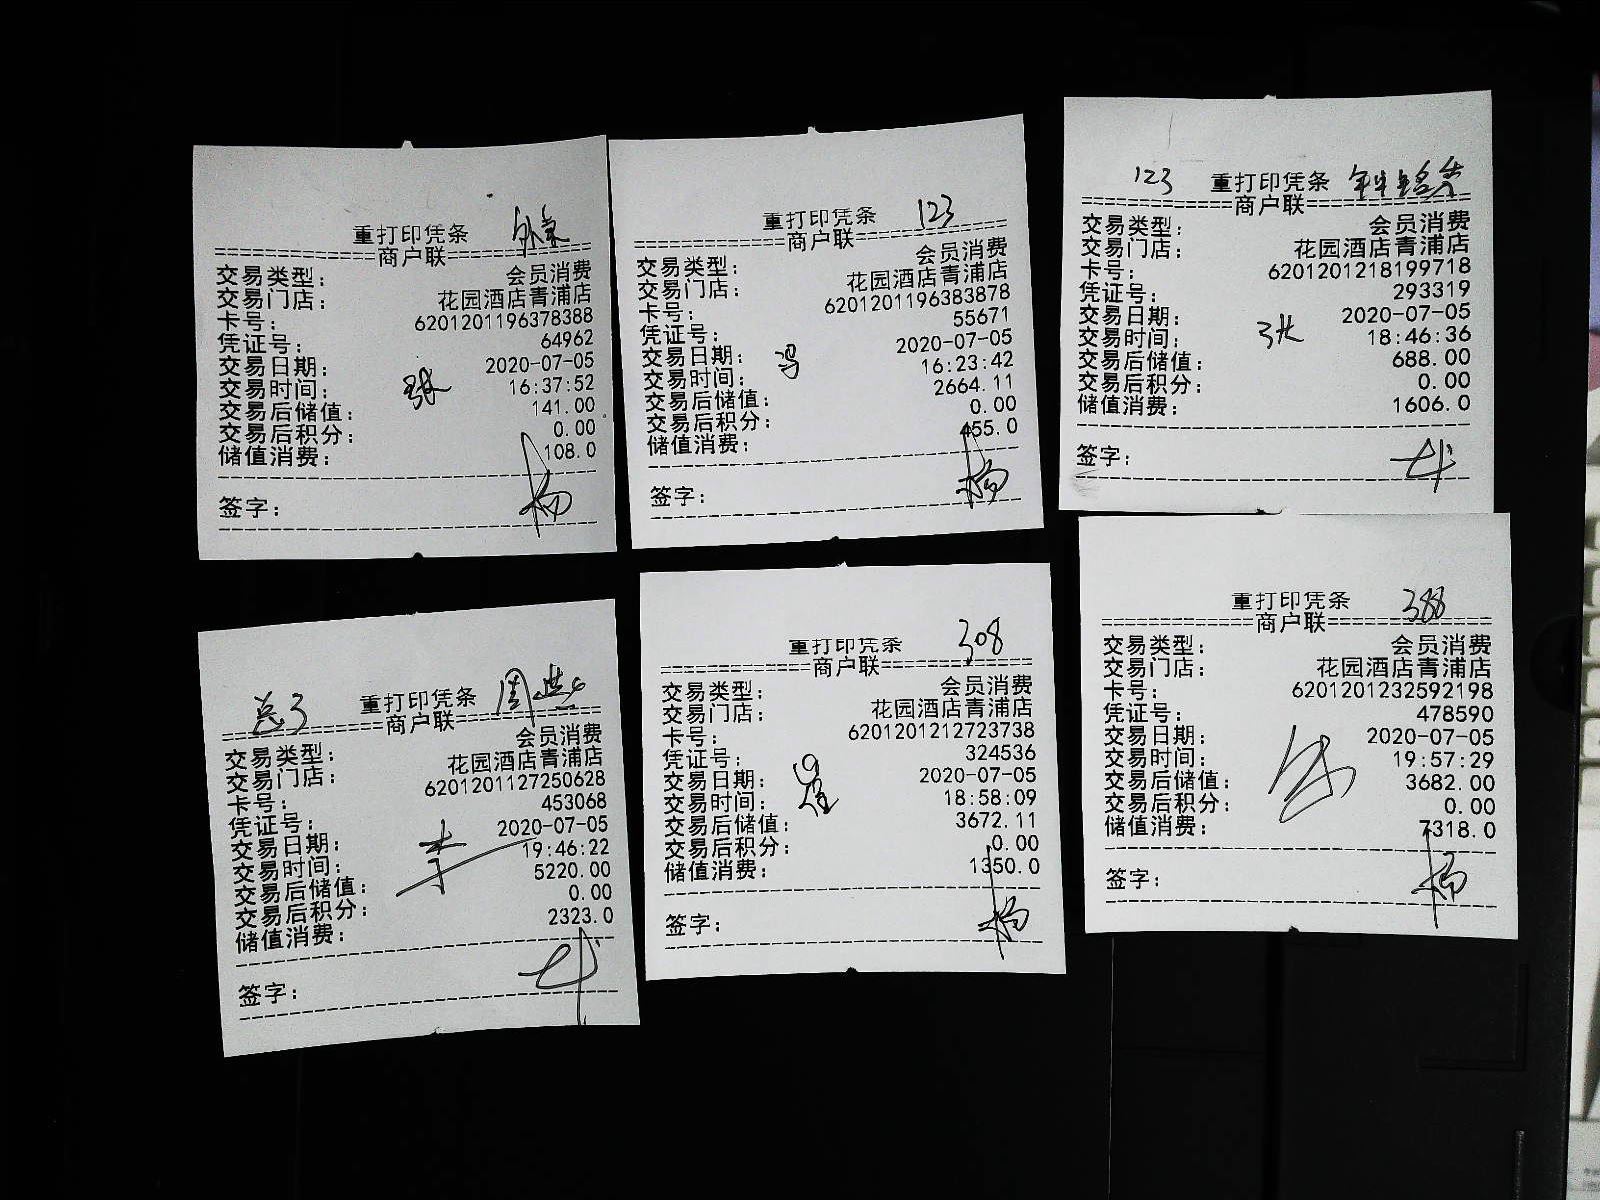 重打印凭条 外桌
==============商户联==============
交易类型： 会员消费
交易门店： 花园酒店青浦店
卡号： 6201201196378388
凭证号： 64962
交易日期： 2020-07-05
交易时间： 16:37:52
张
交易后储值： 141.00
交易后积分： 0.00
储值消费： 108.0
签字： 杨
重打印凭条 123
==============商户联==============
交易类型： 会员消费
交易门店： 花园酒店青浦店
卡号： 6201201196383878
凭证号： 55671
交易日期： 2020-07-05
交易时间： 冯 16:23:42
交易后储值： 2664.11
交易后积分： 0.00
储值消费： 455.0
签字： 杨
123 重打印凭条
==============商户联==============
交易类型： 会员消费
交易门店： 花园酒店青浦店
卡号： 6201201218199718
凭证号： 293319
交易日期： 2020-07-05
交易时间： 张 18:46:36
交易后储值： 688.00
交易后积分： 0.00
储值消费： 1606.0
签字：
重打印凭条
==============商户联==============
交易类型： 会员消费
交易门店： 花园酒店青浦店
卡号： 6201201127250628
凭证号： 453068
交易日期： 2020-07-05
交易时间： 李 19:46:22
交易后储值： 5220.00
交易后积分： 0.00
储值消费： 2323.0
签字：
重打印凭条 308
==============商户联==============
交易类型： 会员消费
交易门店： 花园酒店青浦店
卡号： 6201201212723738
凭证号： 324536
交易日期： 2020-07-05
交易时间： 18:58:09
交易后储值： 3672.11
交易后积分： 0.00
储值消费： 1350.0
签字： 杨
重打印凭条 388
==============商户联==============
交易类型： 会员消费
交易门店： 花园酒店青浦店
卡号： 6201201232592198
凭证号： 478590
交易日期： 2020-07-05
交易时间： 19:57:29
交易后储值： 3682.00
交易后积分： 0.00
储值消费： 7318.0
签字： 杨